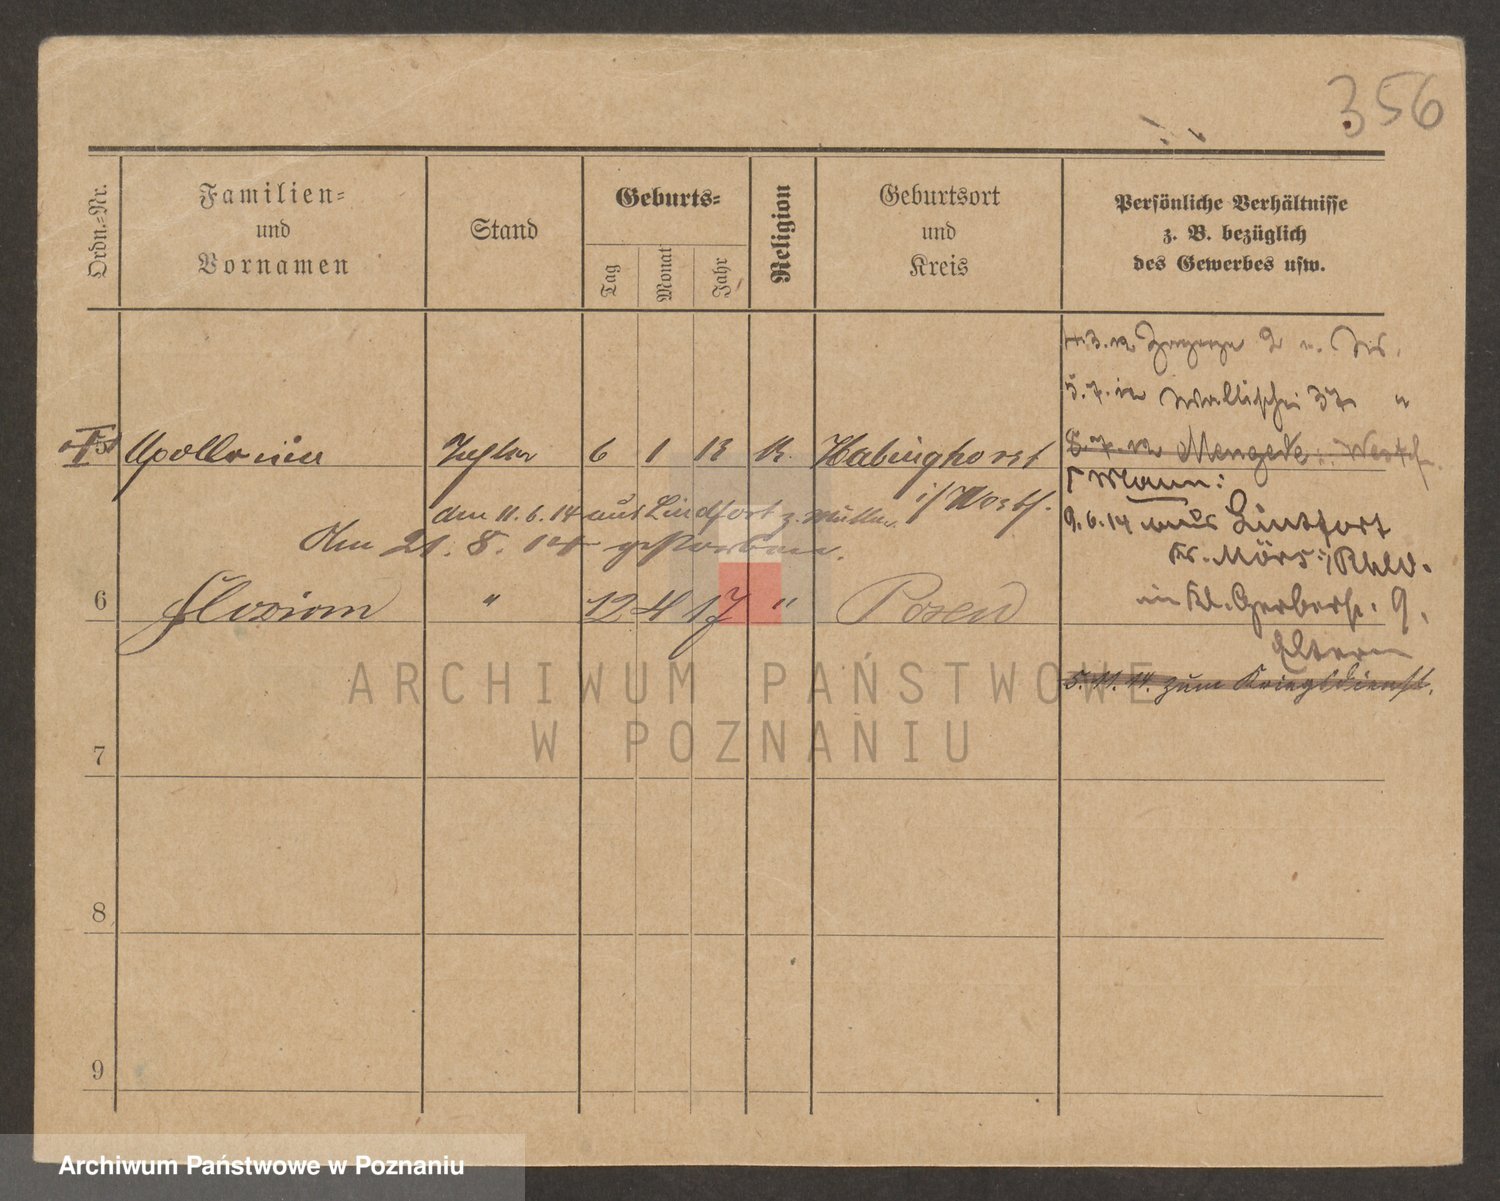 356
Ordn.=Nr.
Familien=
und
Vornamen
Stand
Geburts=
Tag
Monat
Jahr
Religion
Geburtsort
und
Kreis
Persönliche Verhältnisse
z. B. bezüglich
des Gewerbes usw.
5.7. in Wallischei 37 "
5 Apollonia Tochter 6 1 13 K. Habinghorst
i/ Westf.
8.7. in Mengede i. Westf.
Mann:
den 11.6.14 aus Lintfort z. Mutter
9.6.14 aus Lintfort
Kr. Mörs i/Rhld.
Am 21. 8. 14 gestorben.
in Kl. Gerberst. 9.
Eltern
6 Florian " 12 4 17 " Posen
5. 11. 14. zum Kriegsdienst.
7
8
9
ARCHIWUM PAŃSTWOWE
W POZNANIU
Archiwum Państwowe w Poznaniu